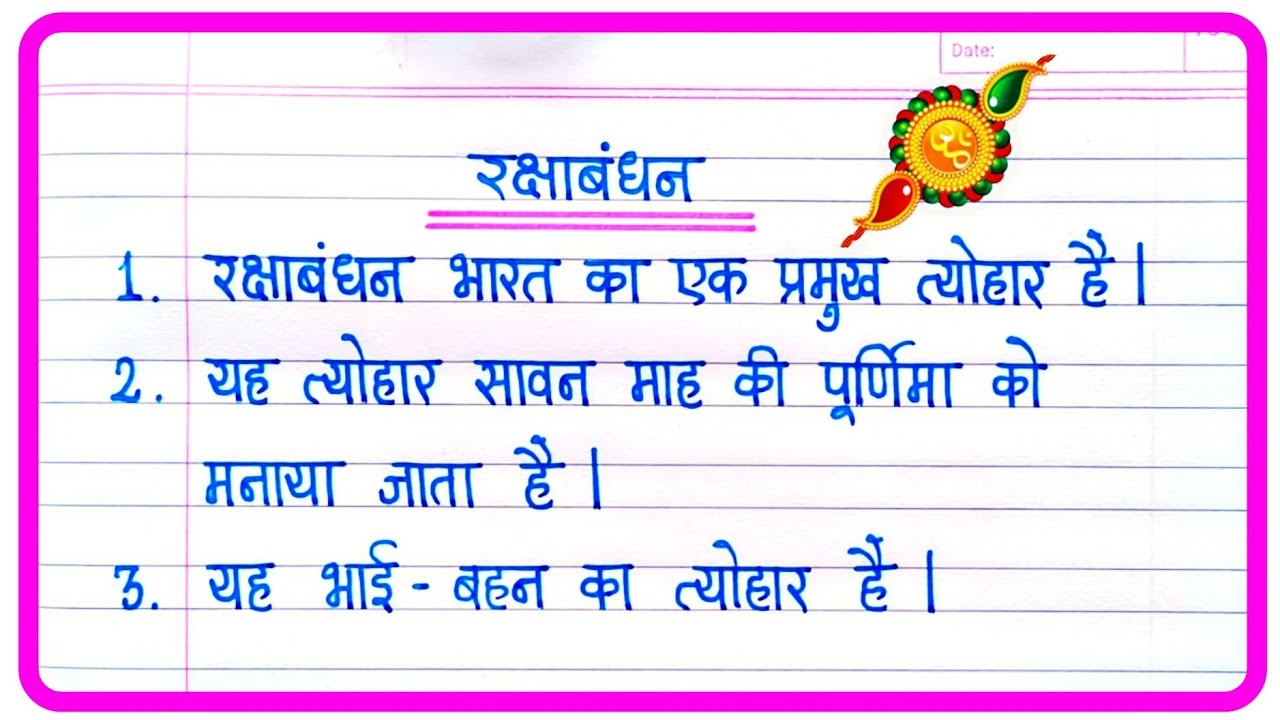 Date:
रक्षाबंधन
1. रक्षाबंधन भारत का एक प्रमुख त्योहार है।
2. यह त्योहार सावन माह की पूर्णिमा को
मनाया जाता है।
3. यह भाई-बहन का त्योहार है।